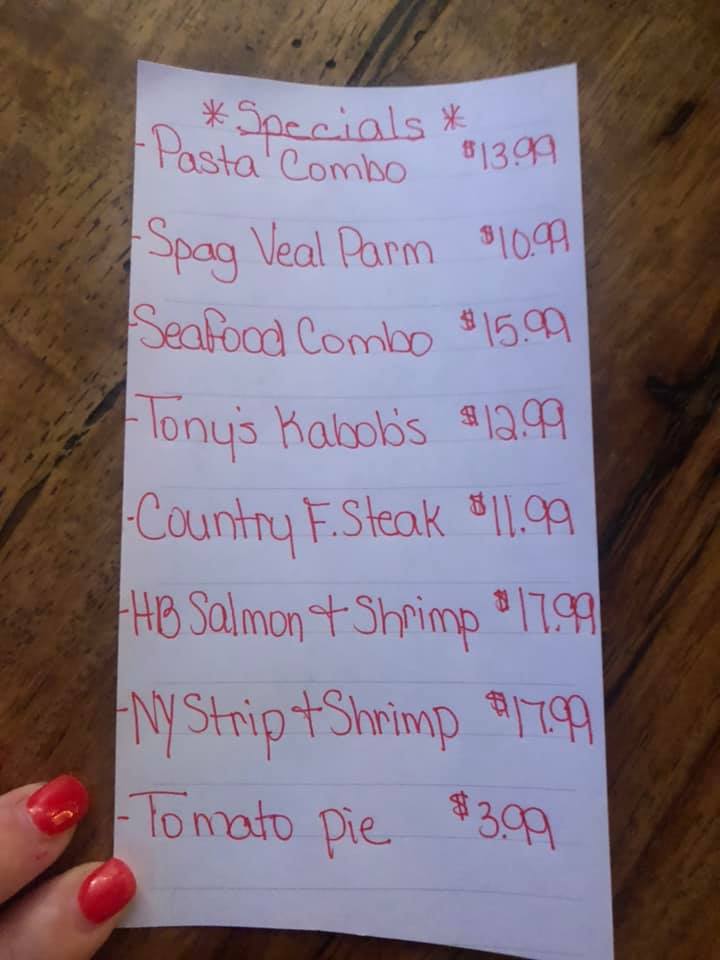 * Specials *
-Pasta Combo $13.99
-Spag Veal Parm $10.99
-Seafood Combo $15.99
-Tony's Kabob's $12.99
-Country F. Steak $11.99
-HB Salmon + Shrimp $17.99
-NY Strip + Shrimp $17.99
-Tomato pie $3.99